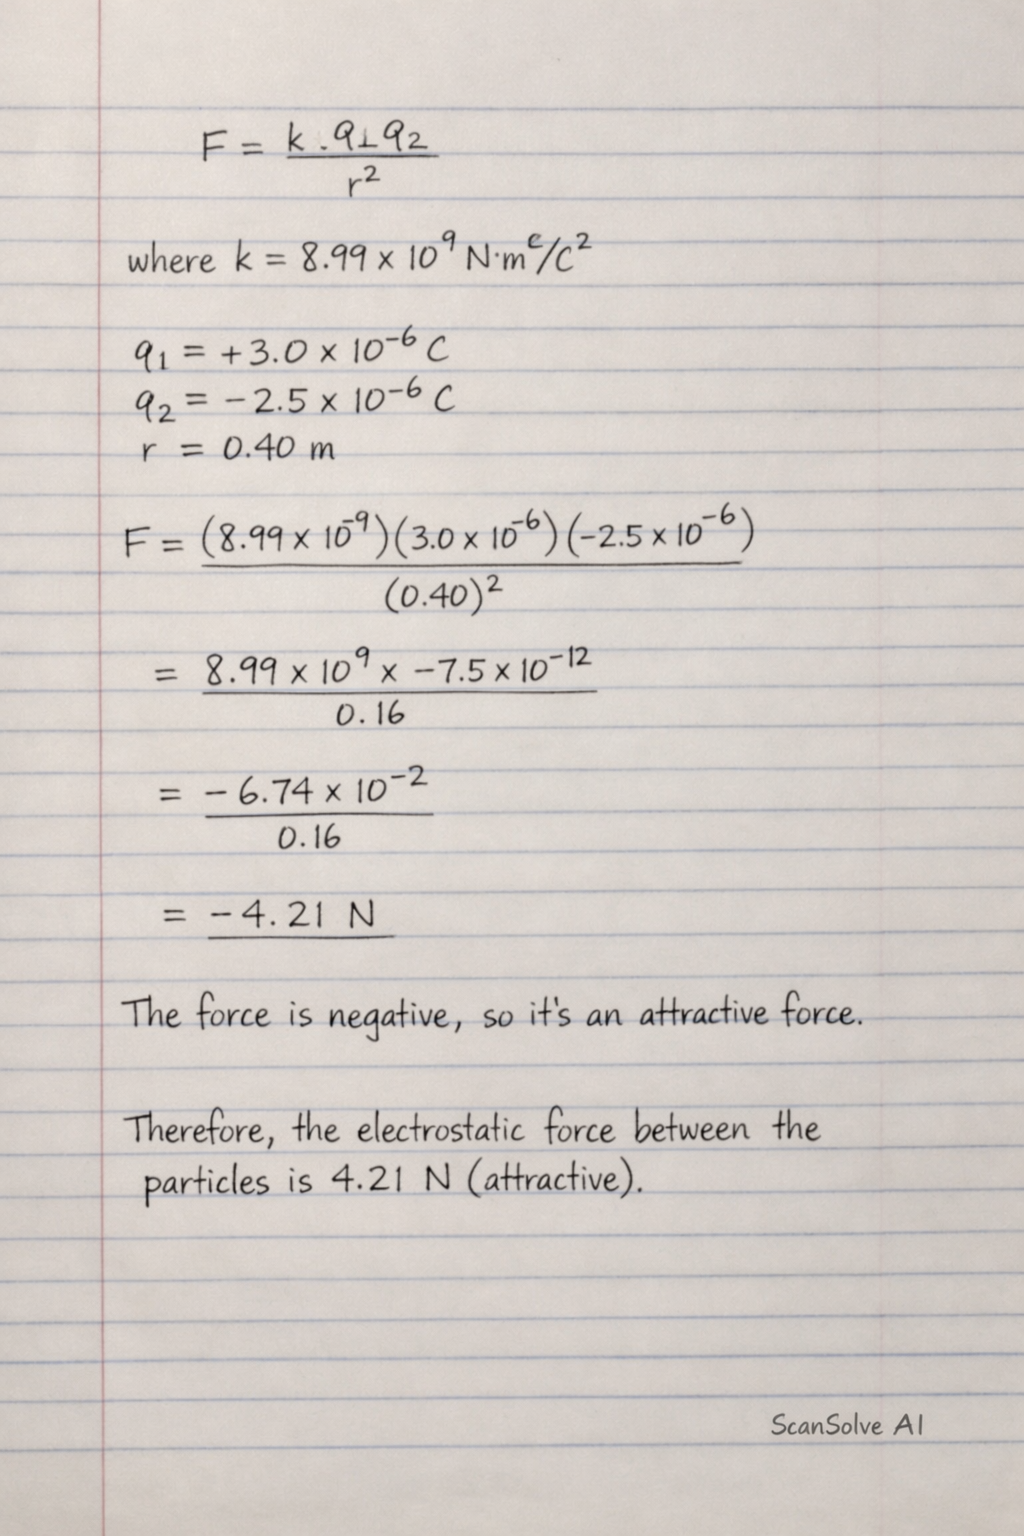 F = k . q1 q2
r²
where k = 8.99 x 10⁹ N·mᶜ/C²
q₁ = +3.0 x 10⁻⁶ C
q₂ = -2.5 x 10⁻⁶ C
r = 0.40 m
F = (8.99 x 10⁻⁹)(3.0 x 10⁻⁶)(-2.5 x 10⁻⁶)
(0.40)²
= 8.99 x 10⁹ x -7.5 x 10⁻¹²
0.16
= -6.74 x 10⁻²
0.16
= -4.21 N
The force is negative, so it's an attractive force.
Therefore, the electrostatic force between the
particles is 4.21 N (attractive).
ScanSolve AI